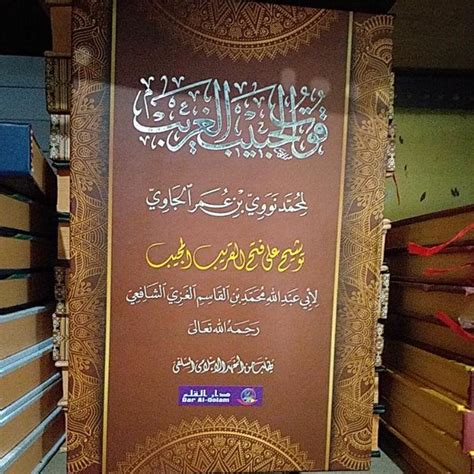 قوت الحبيب الغريب
لمحمد نووي بن عمر الجاوي
توشيح على فتح القريب المجيب
لأبي عبد الله محمد بن القاسم الغزي الشافعي
رحمه الله تعالى
دار القلم
Dar Al-Qolam